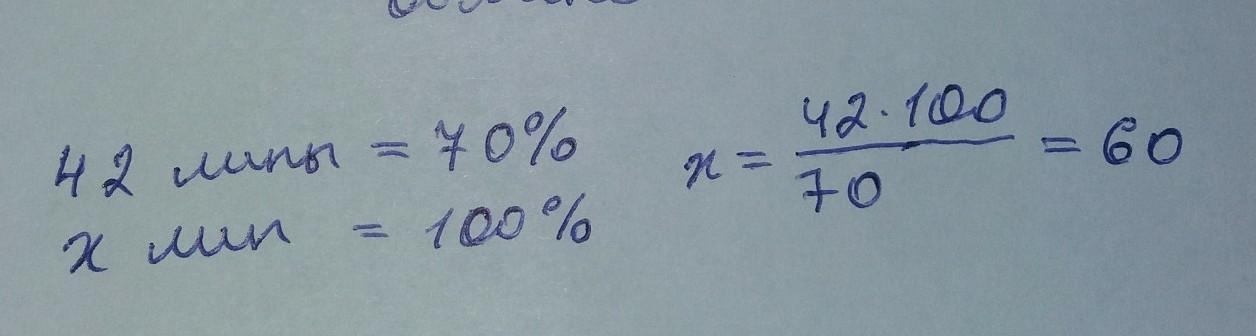 42 липы = 70%
x лип = 100%
x = 42·100 / 70 = 60